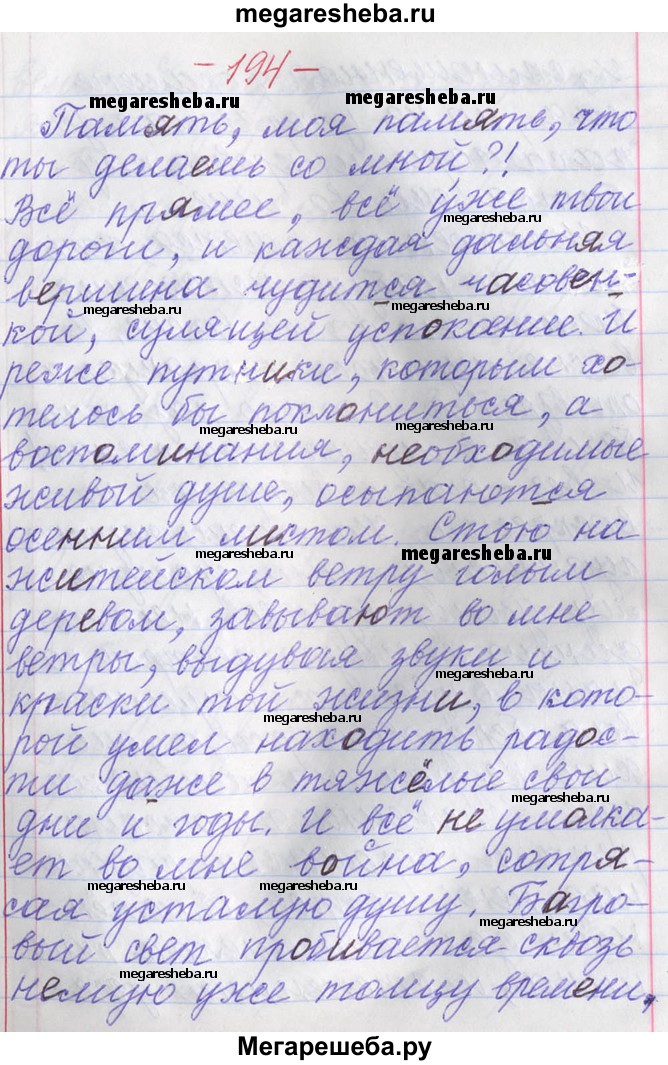 megaresheba.ru
- 194 -
megaresheba.ru megaresheba.ru
Память, моя память, что
ты делаешь со мной?!
Всё прямее, всё уже твои
megaresheba.ru
дороги, и каждая дальняя
вершина чудится часовен-
megaresheba.ru megaresheba.ru
кой, сулящей успокоение. И
реже путники, которым хо-
телось бы поклониться, а
megaresheba.ru megaresheba.ru
воспоминания, необходимые
живой душе, осыпаются
осенним листом. Стою на
megaresheba.ru megaresheba.ru
житейском ветру голым
деревом, завывают во мне
ветры, выдувая звуки и
краски той жизни, в кото-
megaresheba.ru megaresheba.ru
рой умел находить радос-
ти даже в тяжёлые свои
megaresheba.ru
дни и годы. И всё не умолка-
ет во мне война, сотря-
megaresheba.ru megaresheba.ru
сая усталую душу. Багро-
megaresheba.ru
вый свет пробивается сквозь
megaresheba.ru
немую уже толщу времени,
Мегарешеба.ру